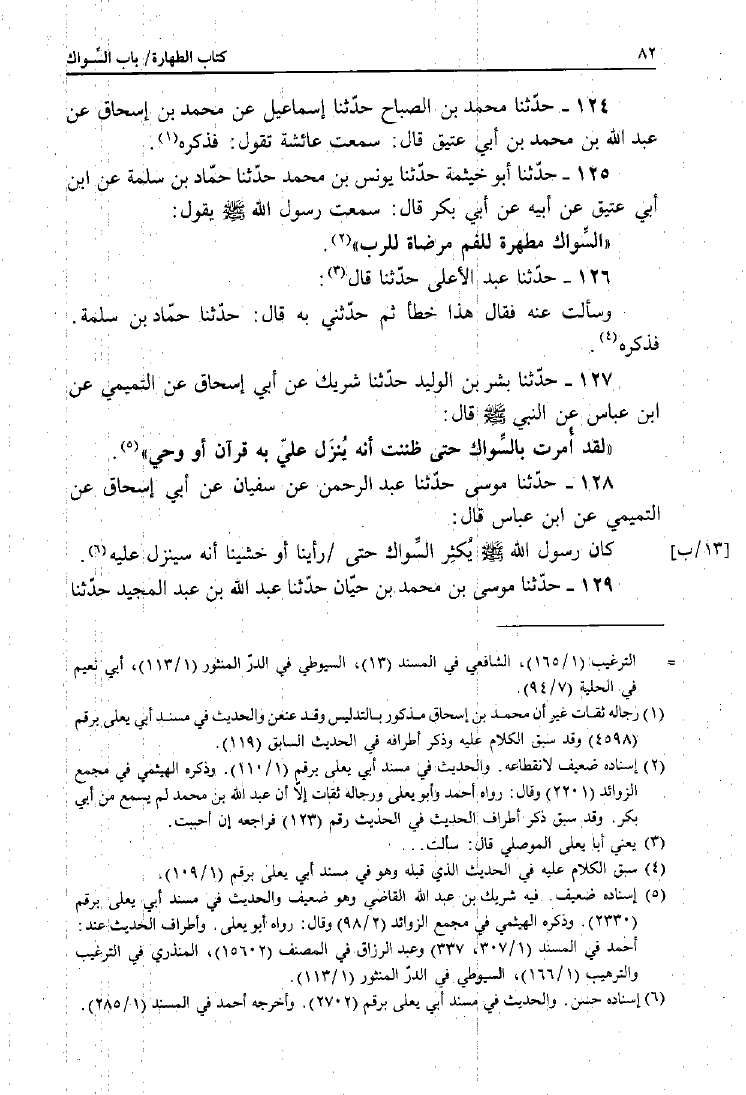 ٨٢
كتاب الطهارة/ باب السِّواك
١٢٤ ـ حدّثنا محمد بن الصباح حدّثنا إسماعيل عن محمد بن إسحاق عن
عبد الله بن محمد بن أبي عتيق قال: سمعت عائشة تقول: فذكره(١).
١٢٥ ـ حدّثنا أبو خيثمة حدّثنا يونس بن محمد حدّثنا حمّاد بن سلمة عن ابن
أبي عتيق عن أبيه عن أبي بكر قال: سمعت رسول الله ﷺ يقول:
«السِّواك مطهرة للفم مرضاة للرب»(٢).
١٢٦ ـ حدّثنا عبد الأعلى حدّثنا قال(٣):
وسألت عنه فقال هذا خطأ ثم حدّثني به قال: حدّثنا حمّاد بن سلمة.
فذكره(٤).
١٢٧ ـ حدّثنا بشر بن الوليد حدّثنا شريك عن أبي إسحاق عن التميمي عن
ابن عباس عن النبي ﷺ قال:
«لقد أُمرت بالسِّواك حتى ظننت أنه يُنزَل عليّ به قرآن أو وحي»(٥).
١٢٨ ـ حدّثنا موسى حدّثنا عبد الرحمن عن سفيان عن أبي إسحاق عن
التميمي عن ابن عباس قال:
[١٣/ب] كان رسول الله ﷺ يُكثِر السِّواك حتى /رأينا أو خشينا أنه سينزل عليه(٦).
١٢٩ ـ حدّثنا موسى بن محمد بن حيّان حدّثنا عبد الله بن عبد المجيد حدّثنا
= الترغيب (١/ ١٦٥)، الشافعي في المسند (١٣)، السيوطي في الدرّ المنثور (١/ ١١٣)، أبي نعيم
في الحلية (٧/ ٩٤).
(١) رجاله ثقات غير أن محمد بن إسحاق مذكور بالتدليس وقد عنعن والحديث في مسند أبي يعلى برقم
(٤٥٩٨) وقد سبق الكلام عليه وذكر أطرافه في الحديث السابق (١١٩).
(٢) إسناده ضعيف لانقطاعه. والحديث في مسند أبي يعلى برقم (١/ ١١٠). وذكره الهيثمي في مجمع
الزوائد (٢٢٠١) وقال: رواه أحمد وأبو يعلى ورجاله ثقات إلاّ أن عبد الله بن محمد لم يسمع من أبي
بكر. وقد سبق ذكر أطراف الحديث في الحديث رقم (١٢٣) فراجعه إن أحببت.
(٣) يعني أبا يعلى الموصلي قال: سألت...
(٤) سبق الكلام عليه في الحديث الذي قبله وهو في مسند أبي يعلى برقم (١/ ١٠٩).
(٥) إسناده ضعيف. فيه شريك بن عبد الله القاضي وهو ضعيف والحديث في مسند أبي يعلى برقم
(٢٣٣٠). وذكره الهيثمي في مجمع الزوائد (٢/ ٩٨) وقال: رواه أبو يعلى. وأطراف الحديث عند:
أحمد في المسند (١/ ٣٠٧، ٣٣٧) وعبد الرزاق في المصنف (١٥٦٠٢)، المنذري في الترغيب
والترهيب (١/ ١٦٦)، السيوطي في الدرّ المنثور (١/ ١١٣).
(٦) إسناده حسن. والحديث في مسند أبي يعلى برقم (٢٧٠٢). وأخرجه أحمد في المسند (١/ ٢٨٥).